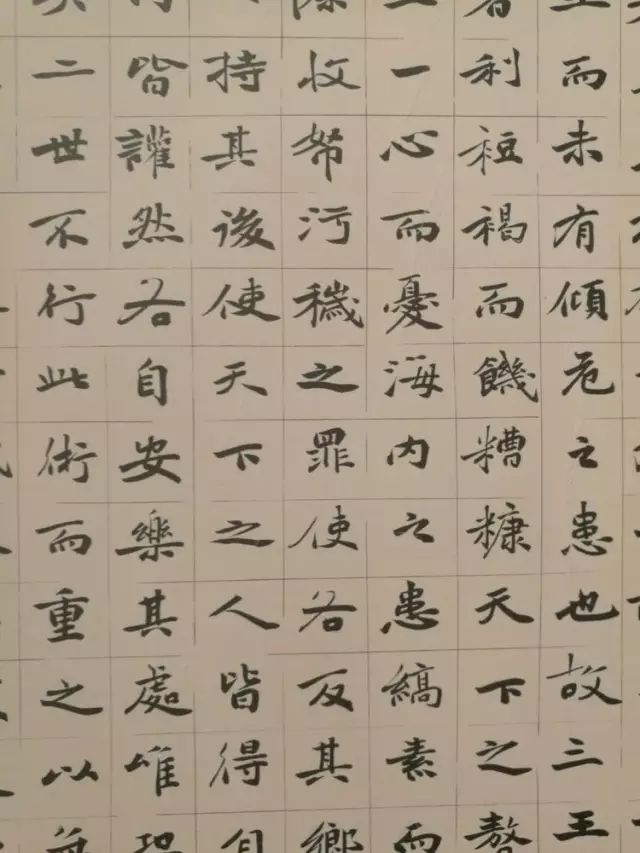 而未有傾危之患也故三王
者利裋褐而饑糟糠天下之嗸
一心而憂海内之患縞素而
除收帑污穢之罪使各反其鄉
持其後使天下之人皆得自
皆讙然各自安樂其處唯恐
二世不行此術而重之以無